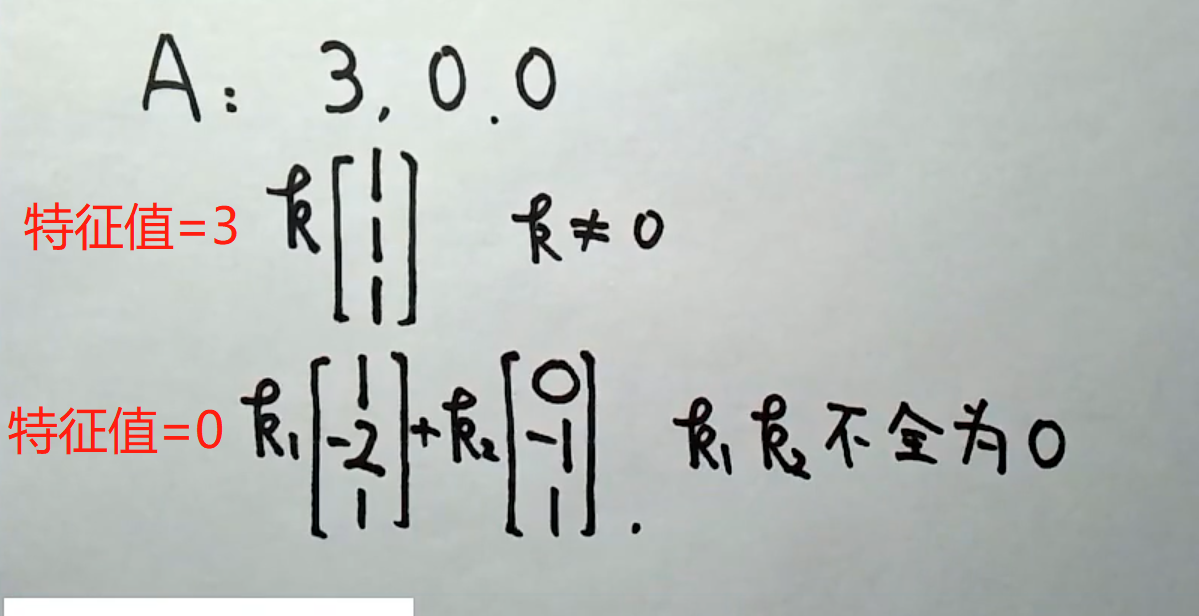 A: 3, 0.0
特征值=3 k[1 1 1] k≠0
特征值=0 k₁[1 -2 1]+k₂[0 -1 1]. k₁ k₂ 不全为0